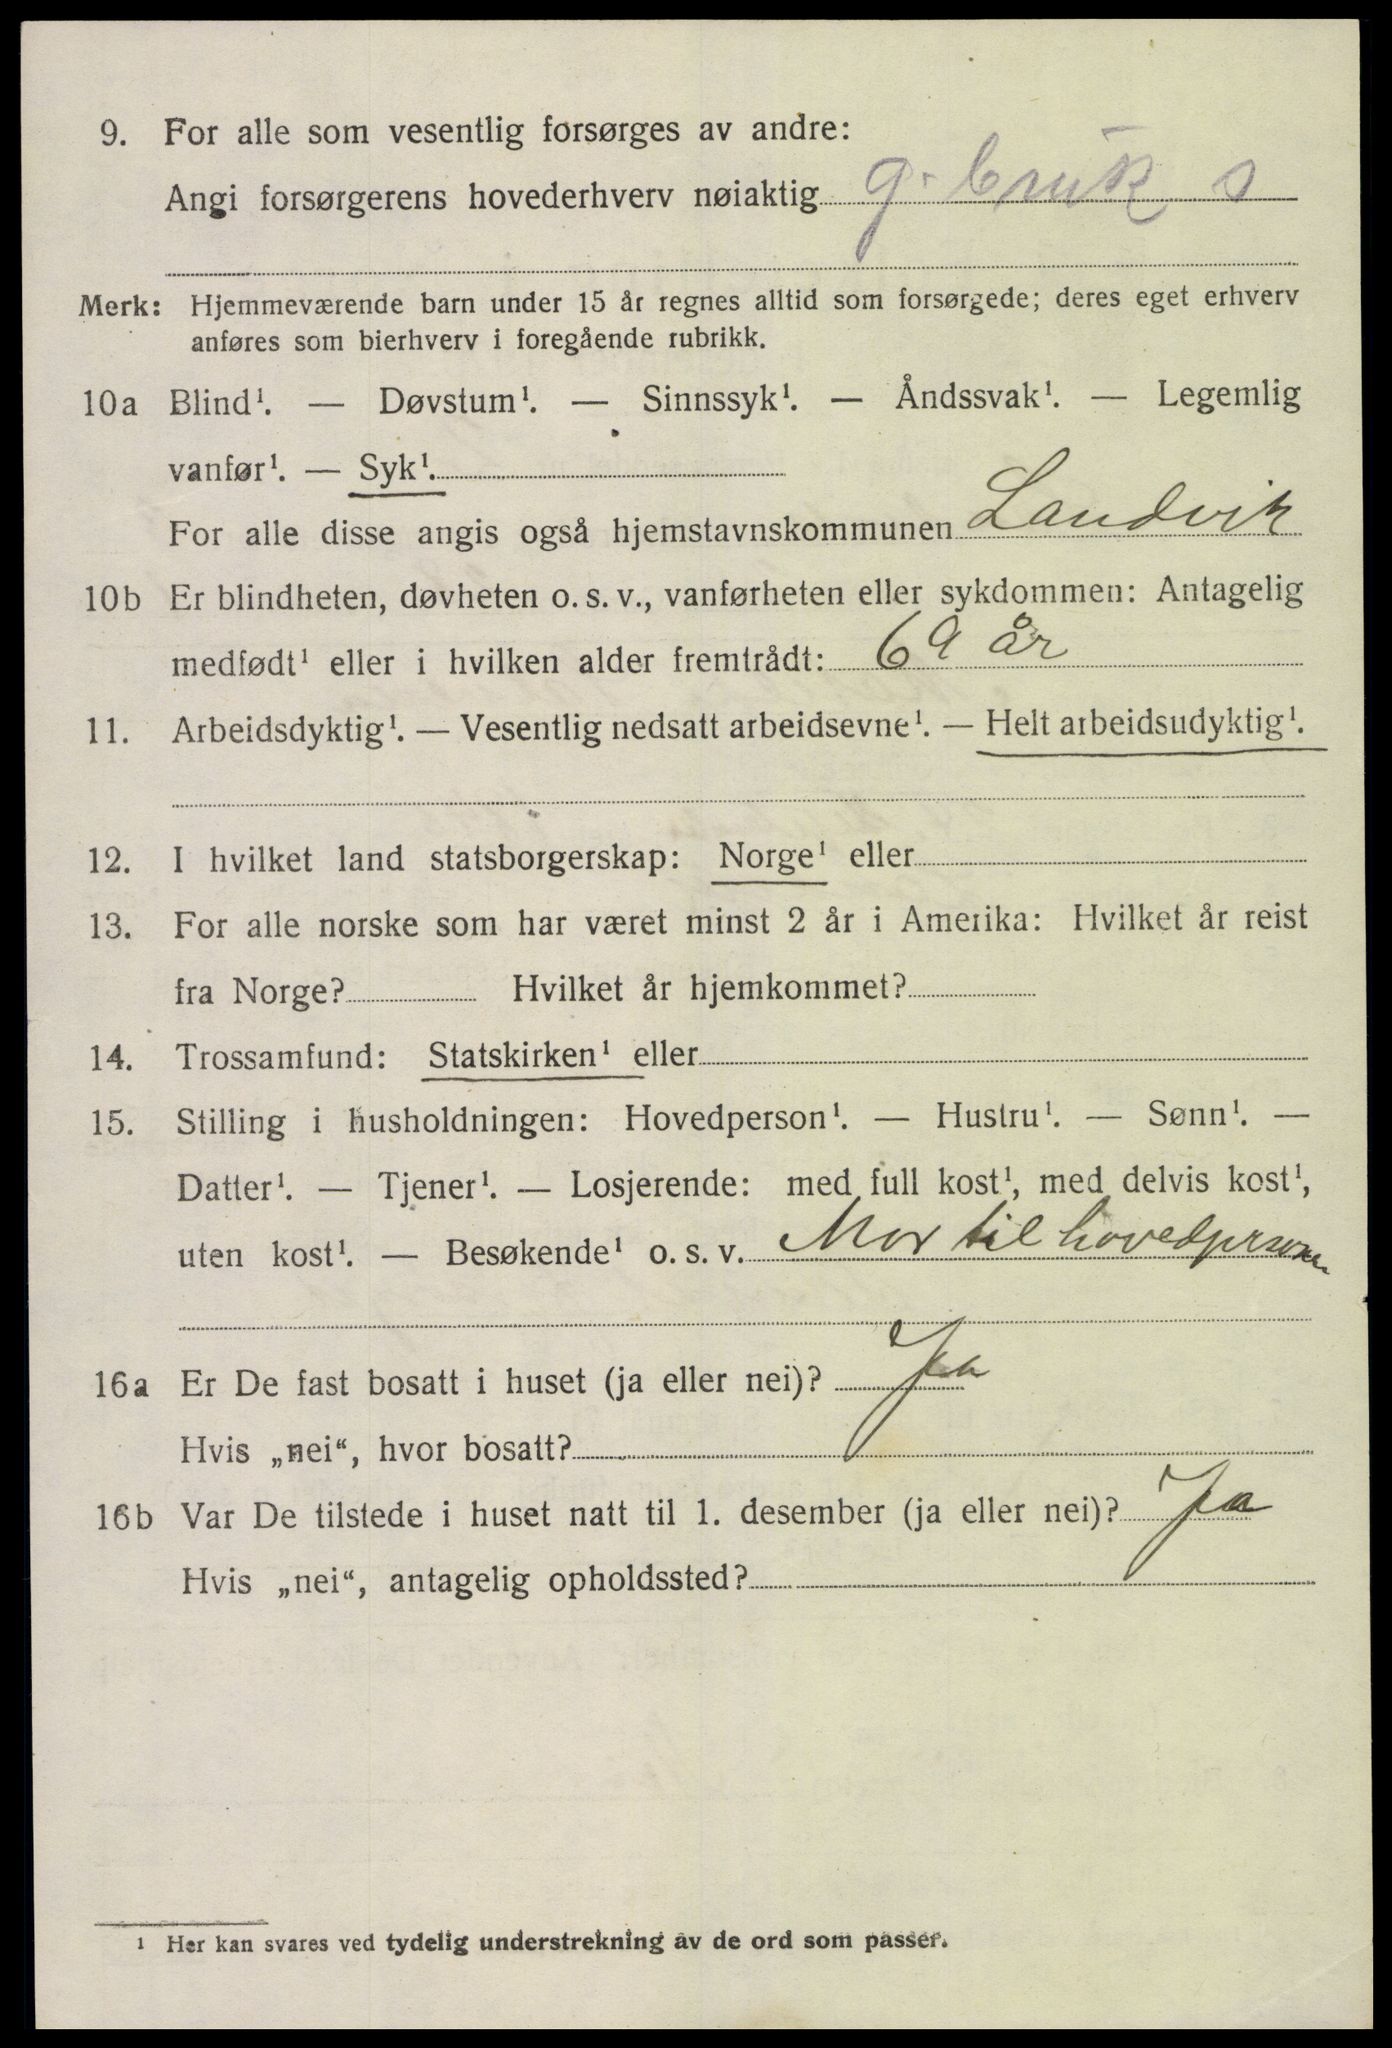 9. For alle som vesentlig forsørges av andre:
Angi forsørgerens hovederhverv nøiaktig g. bruk s
Merk: Hjemmeværende barn under 15 år regnes alltid som forsørgede; deres eget erhverv
anføres som bierhverv i foregående rubrikk.
10a Blind¹. — Døvstum¹. — Sinnssyk¹. — Åndssvak¹. — Legemlig
vanfør¹. — Syk¹.
For alle disse angis også hjemstavnskommunen Landvik
10b Er blindheten, døvheten o. s. v., vanførheten eller sykdommen: Antagelig
medfødt¹ eller i hvilken alder fremtrådt: 69 år
11. Arbeidsdyktig¹. — Vesentlig nedsatt arbeidsevne¹. — Helt arbeidsudyktig¹.
12. I hvilket land statsborgerskap: Norge¹ eller
13. For alle norske som har været minst 2 år i Amerika: Hvilket år reist
fra Norge? Hvilket år hjemkommet?
14. Trossamfund: Statskirken¹ eller
15. Stilling i husholdningen: Hovedperson¹. — Hustru¹. — Sønn¹. —
Datter¹. — Tjener¹. — Losjerende: med full kost¹, med delvis kost¹,
uten kost¹. — Besøkende¹ o. s. v. Mor til hovedpersonen
16a Er De fast bosatt i huset (ja eller nei)? Ja
Hvis „nei“, hvor bosatt?
16b Var De tilstede i huset natt til 1. desember (ja eller nei)? Ja
Hvis „nei“, antagelig opholdssted?
¹ Her kan svares ved tydelig understrekning av de ord som passer.